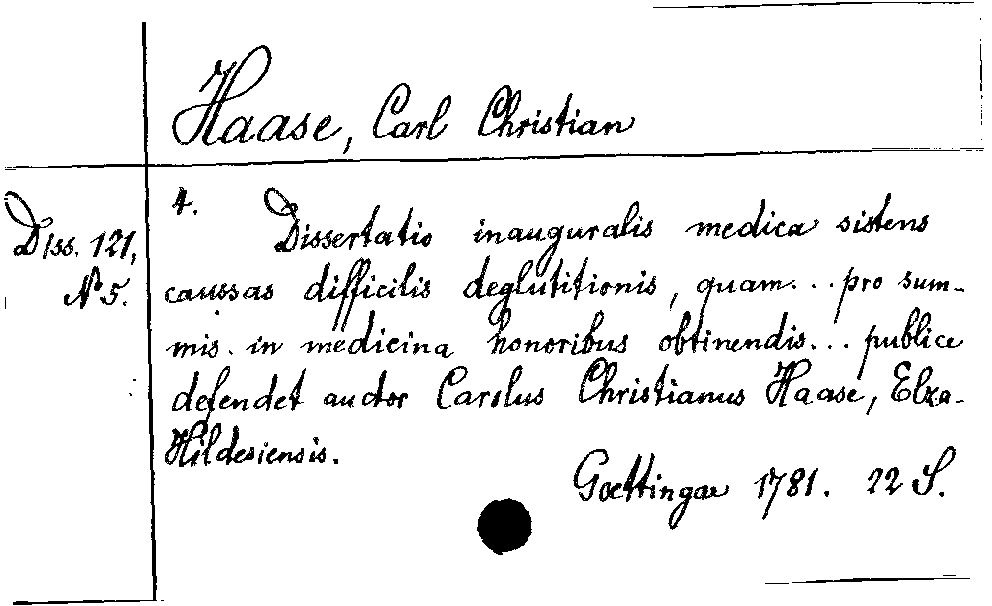 Haase, Carl Christian
Diss. 121,
№ 5.
4. Dissertatio inauguralis medica sistens
caussas difficilis deglutitionis, quam... pro sum-
mis in medicina honoribus obtinendis... publice
defendet auctor Carolus Christianus Haase, Elza-
Hildesiensis.
Goettingae 1781. 22 S.